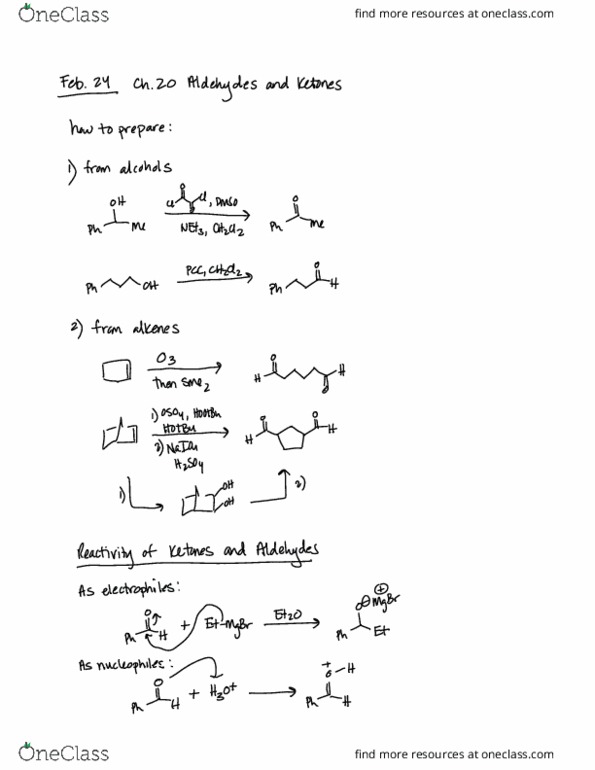 OneClass
find more resources at oneclass.com
Feb. 24 Ch.20 Aldehydes and Ketones
how to prepare:
1) from alcohols
OH
Ph Me
Cl O Cl, DMSO
NEt3, CH2Cl2
O
Ph Me
Ph OH
PCC, CH2Cl2
O
Ph H
2) from alkenes
O3
then SMe2
O H
H O
1) OsO4, HOOtBu
HOtBu
2) NaIO4
H2SO4
O O
H H
1)
OH
OH
2)
Reactivity of Ketones and Aldehydes
As electrophiles:
O
Ph H + Et-MgBr
Et2O
O⊖ ⊕MgBr
Ph Et
As nucleophiles:
O
Ph H + H3O+
+O-H
Ph H
OneClass
find more resources at oneclass.com